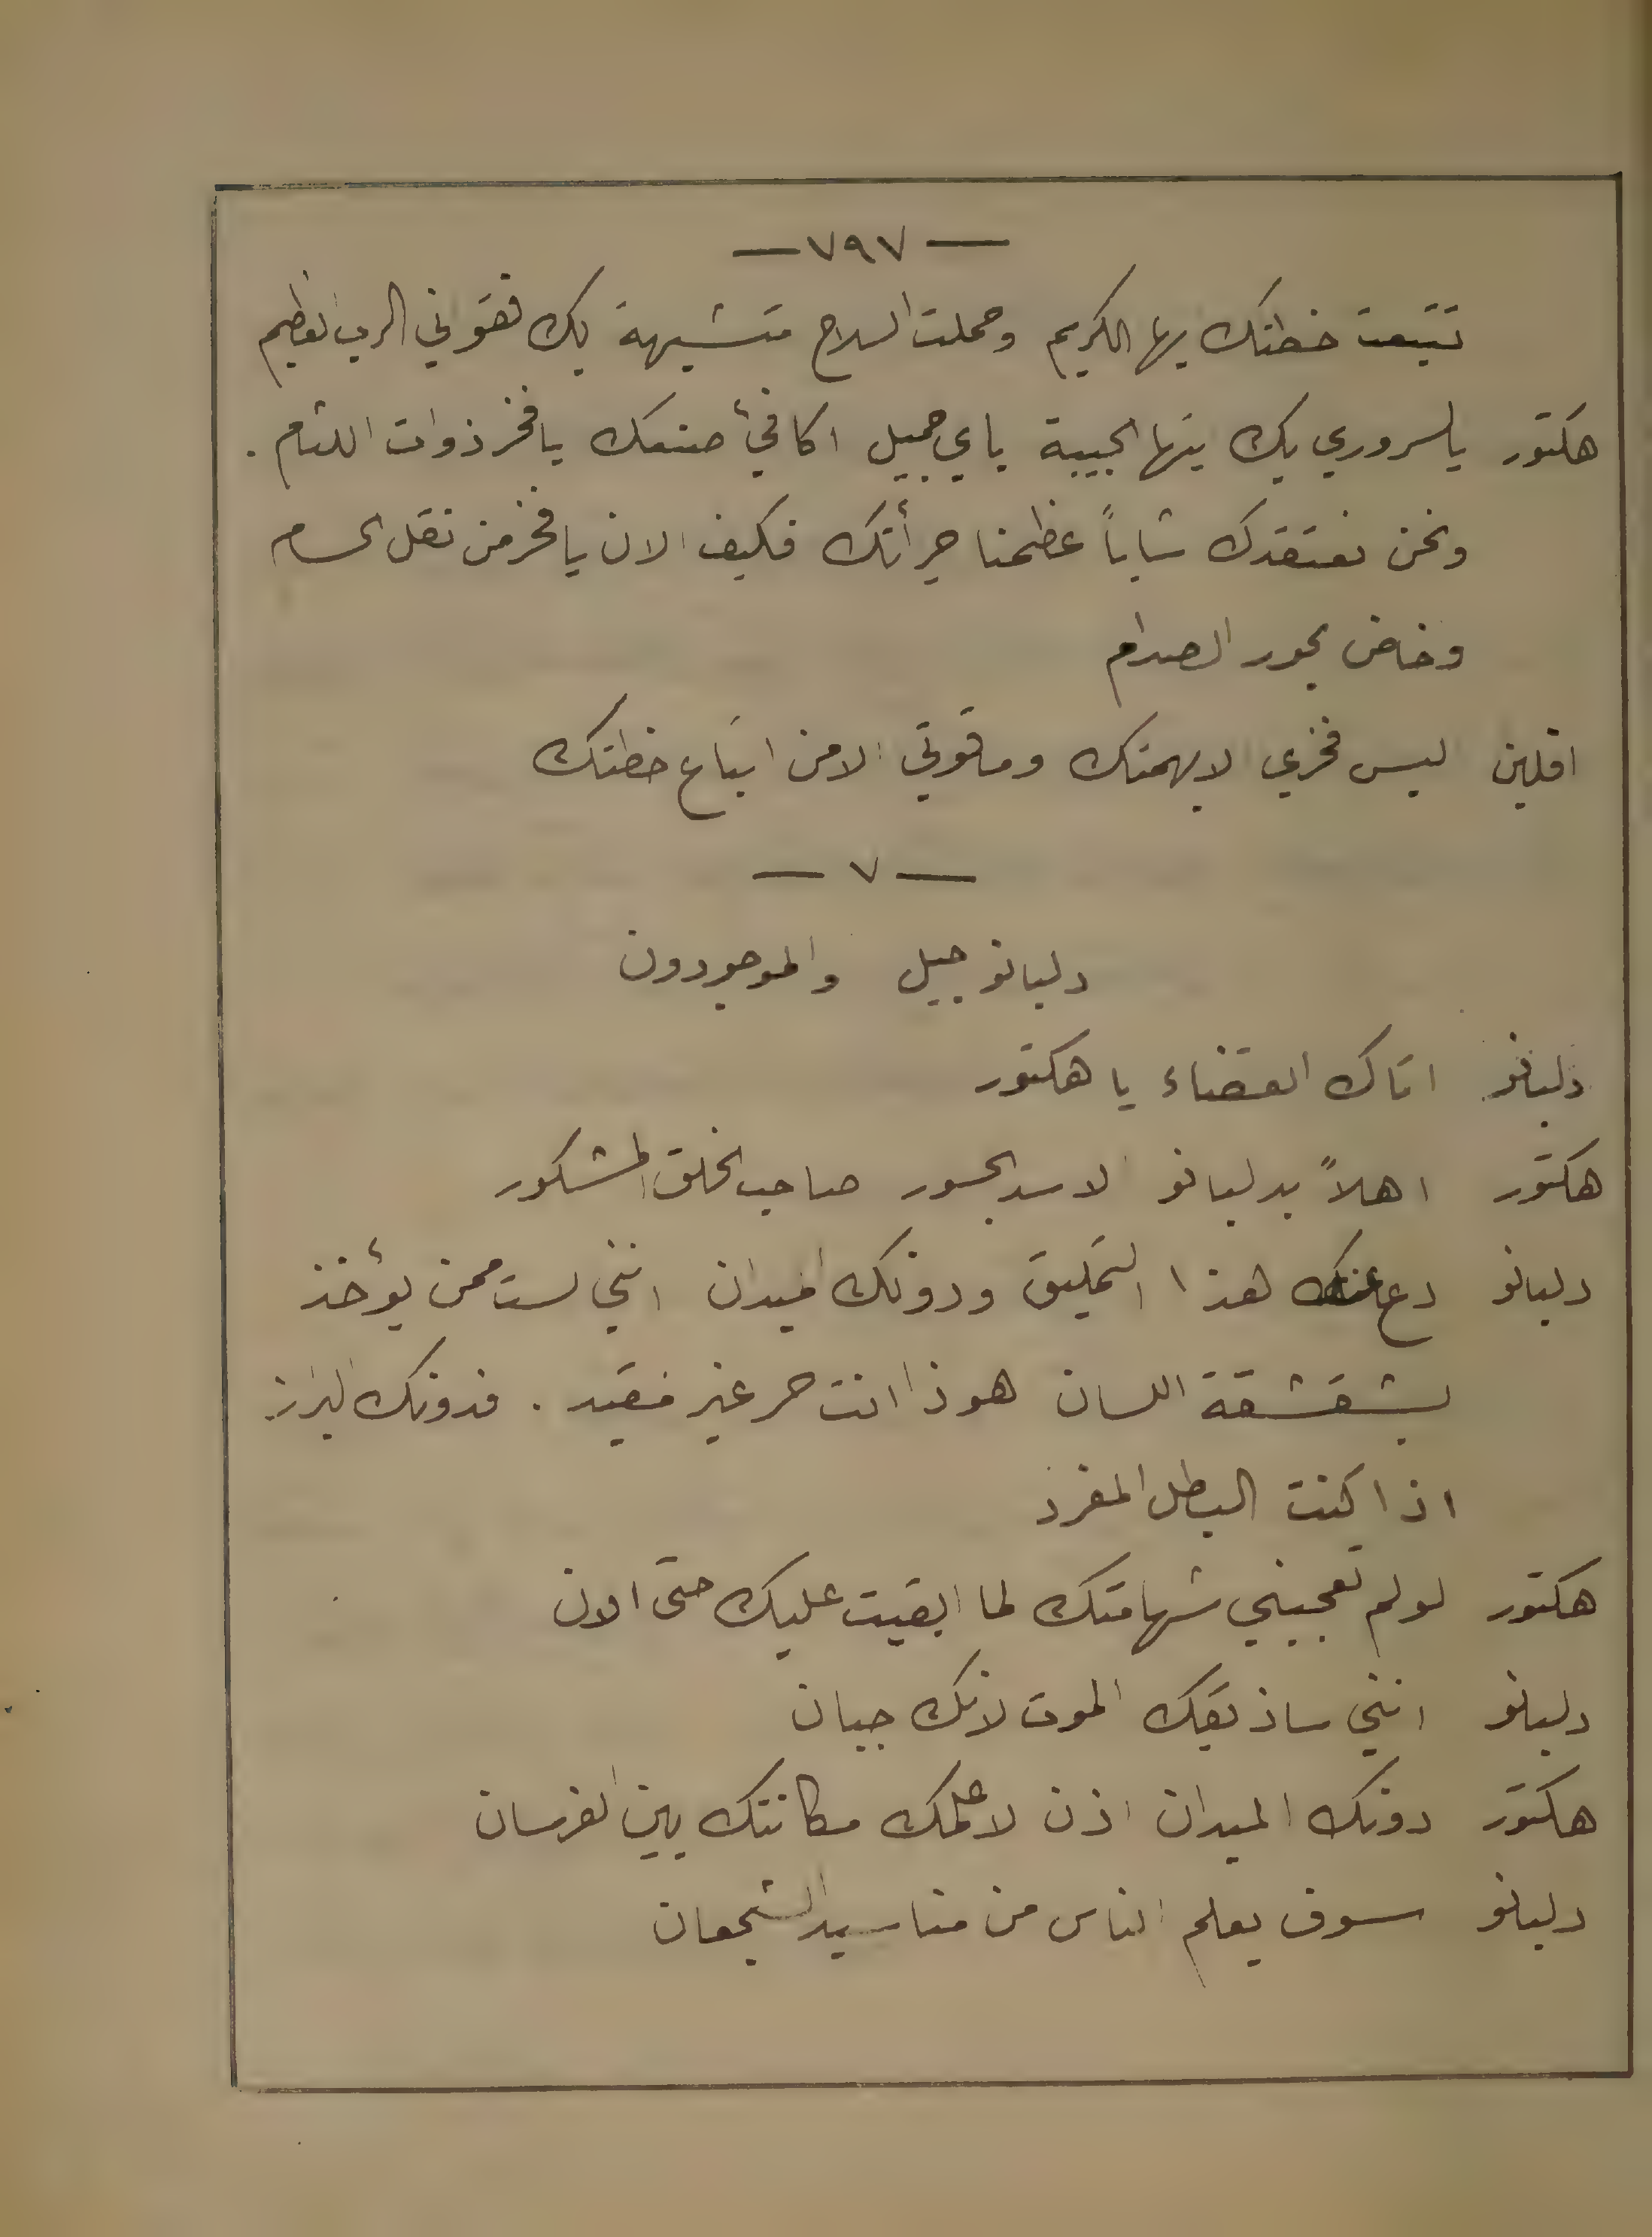 — ٧٩٧ —
تتبعت خطتك ايها الكريم وحملت السلاح متشبهة بك فقواني الرب العظيم
هكتور يا لسروري بك ايتها الحبيبة باي جميل اكافئ صنعك يا فخر ذوات اللثام .
ونحن نعتقدك شاباً عظمنا جرأتك فكيف الان يا فخر من نقل الحسام
وخاض بحور الصدام
افلين ليس فخري الا بهمتك وما قوتي الا من اتباع خطتك
— ٧ —
دلبانو جيل والموجودون
دلبانو اتاك القضاء يا هكتور
هكتور اهلاً بدلبانو الاسد الجسور صاحب الخلق المشكور
دلبانو دع عنك هذا التمليق ودونك الميدان انني لست ممن يؤخذ
بشقشقة اللسان هوذا انت حر غير مقيد . فدونك البراز
اذا كنت البطل المفرد
هكتور لو لم تعجبني شهامتك لما ابقيت عليك حتى الان
دلبانو انني ساذيقك الموت لانك جبان
هكتور دونك الميدان اذن لاعلمك مكانتك بين الفرسان
دلبانو سوف يعلم الناس من منا سيد الشجعان